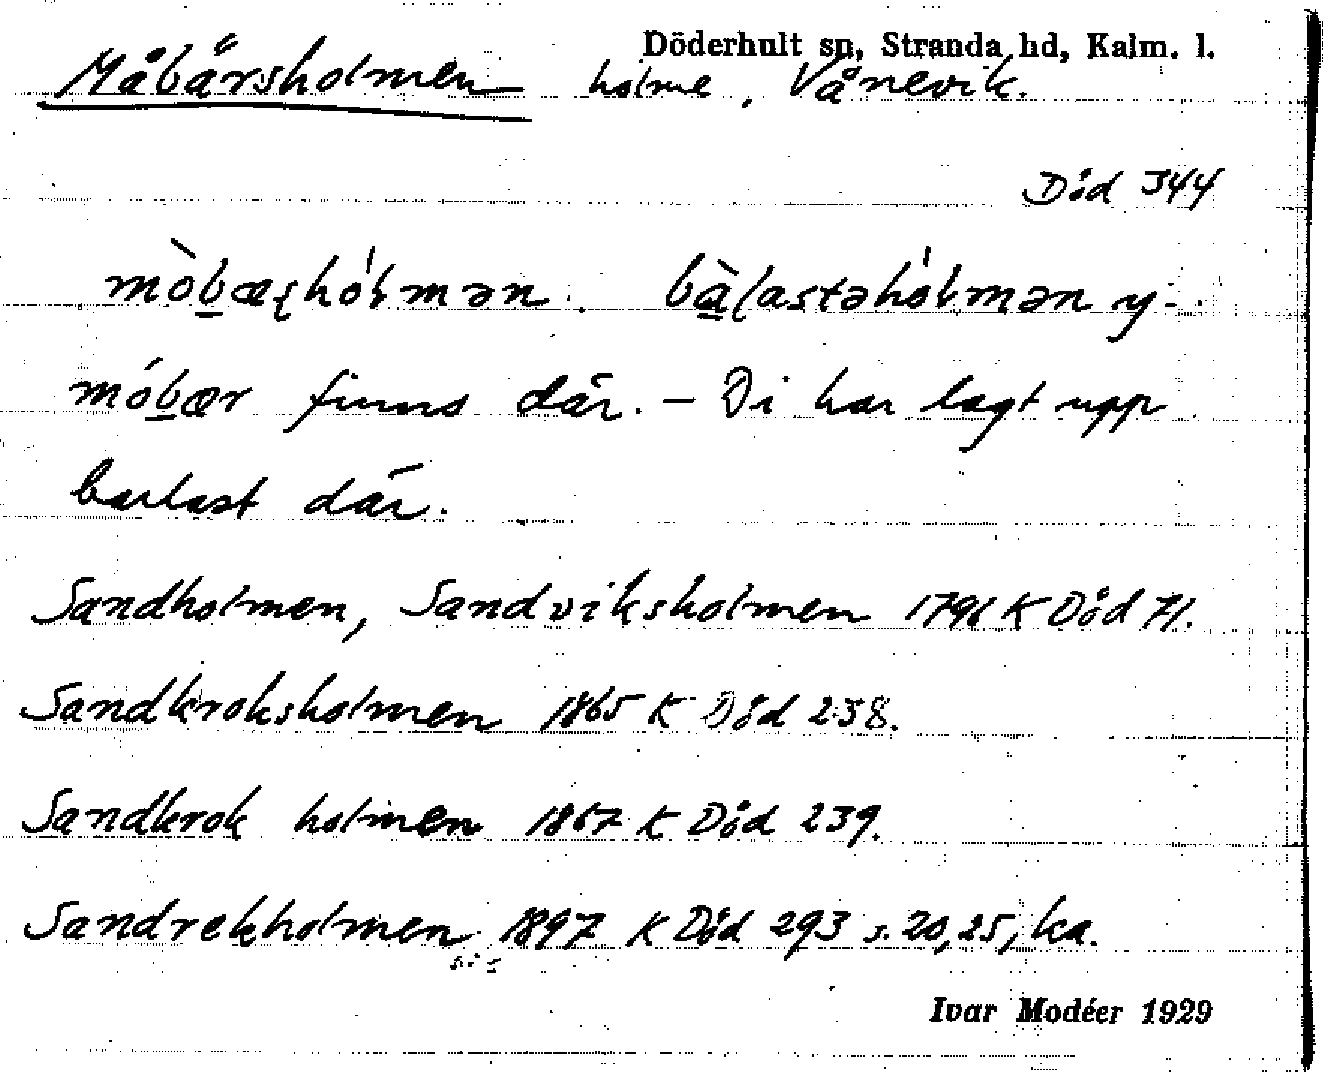 Döderhult sn, Stranda hd, Kalm. l.
Måbärsholmen holme, Vånevik.
Död 344
mòbæʂhól̵mən. bàlastəhól̵mən y-
móbær finns där. – Di har lagt upp
barlast där.
Sandholmen, Sandviksholmen 1796 K Död 71.
Sandkroksholmen 1865 K Död 238.
Sandkrok holmen 1867 K Död 239.
Sandrekholmen 1897 K Död 293 s. 20, 25, ka.
Ivar Modéer 1929